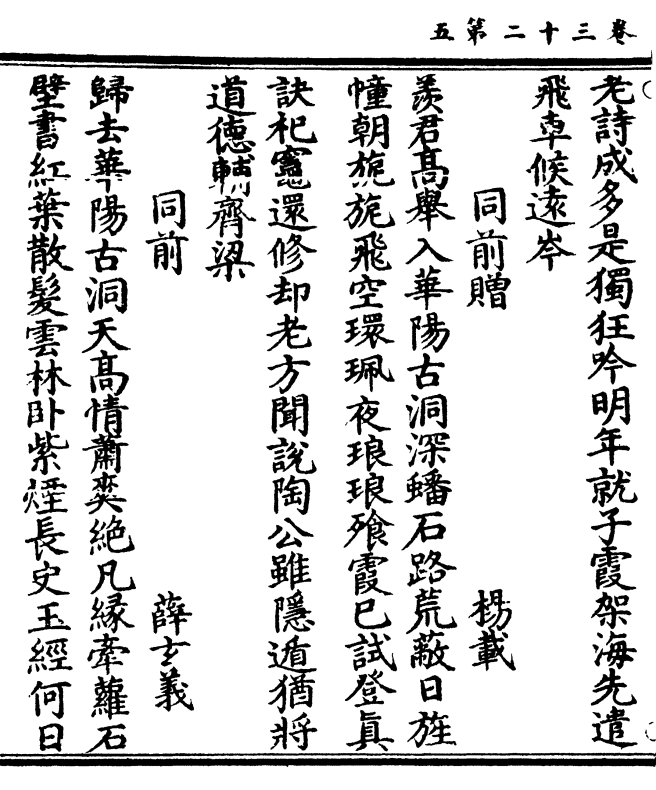 卷三十二第五
老詩成多是獨狂吟明年就子霞架海先遣
飛車候遠岑
同前贈 楊載
羨君髙舉入華陽古洞深蟠石路荒蔽日旌
幢朝旎旎飛空環珮夜琅琅飱霞已試登眞
訣祀竈還修却老方聞說陶公雖隱遁猶將
道德輔齊梁
同前 薛玄義
歸去華陽古洞天髙情蕭爽絶凡緣牽蘿石
壁書紅葉散髮雲林卧紫煙長史玉經何日